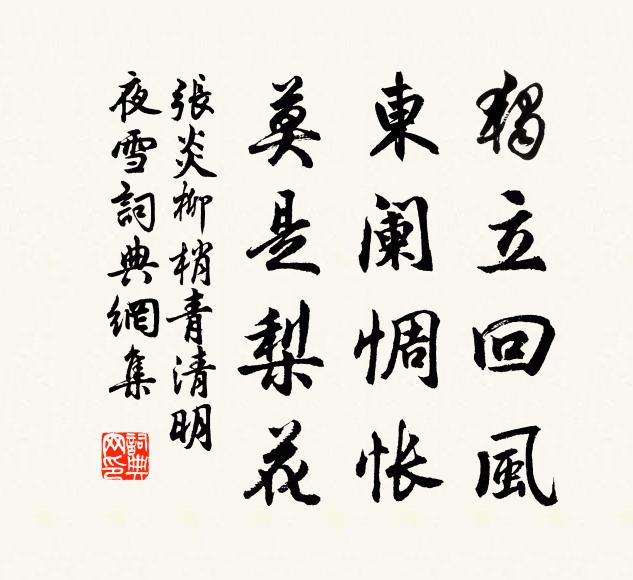 獨立回風
東闌惆悵
莫是梨花
張炎柳梢青清明
夜雪詞典網集
詞典網印